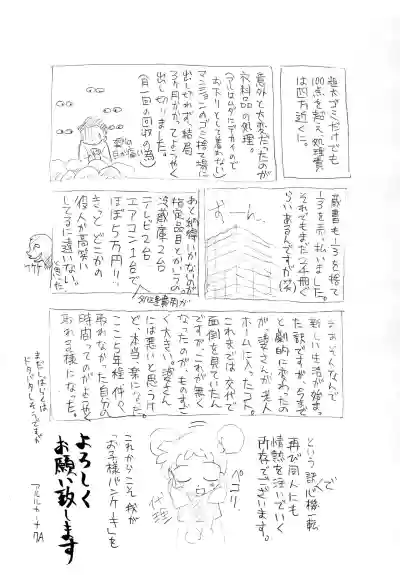 粗大ゴミだけでも
100点を超え、処理費
は四万近くに。
意外と大変だったのが
衣料品の処理。
(アルはムダにデカイので
お下りとして着れない)
マンションのゴミ捨て場に
出し切れず、結局
3ヶ月かかってようやく
出し切りました。
(月一回の回収の為)
蔵書も1/3を捨て
1/3を売払いました。
それでもまだ2千冊ぐ
らいあるんですが(笑)
ずーん…
あと納得いかないのが
指定品目とかいうの。
冷蔵庫2台
テレビ2台
エアコン1台で
ほぼ5万円!!
きっとどこかの
役人が高笑い
してるに違いない。
処理費用が
そぉそんなんで
新しい生活が始まっ
た訳ですが、今まで
と劇的に変わったの
が、婆さんが老人
ホームに入ったコト。
これまでは交代で
面倒を見ていたん
ですが、これが無く
なったのが、ものすご
く大きい。婆さん
には悪いと思うけ
ど、本当、楽になった。
ここ5年程、件々
取れなかった自分の
時間ってのがようやく
取れる様になった。
まだしばらくは
ドタバタしそうですが
という訳で
心機一転
再び同人にも
情熱を注いでいく
所存でございます。
ペコリ
代理
これからこそ我が
「お子様パンケーキ」を
よろしく
お願い致します
アルルカーナ7A